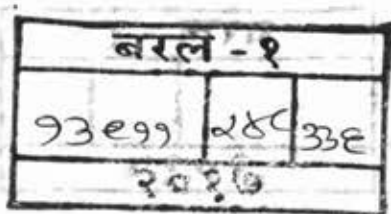 बरल - १
१३९११ २४८ ३३६
२०१७